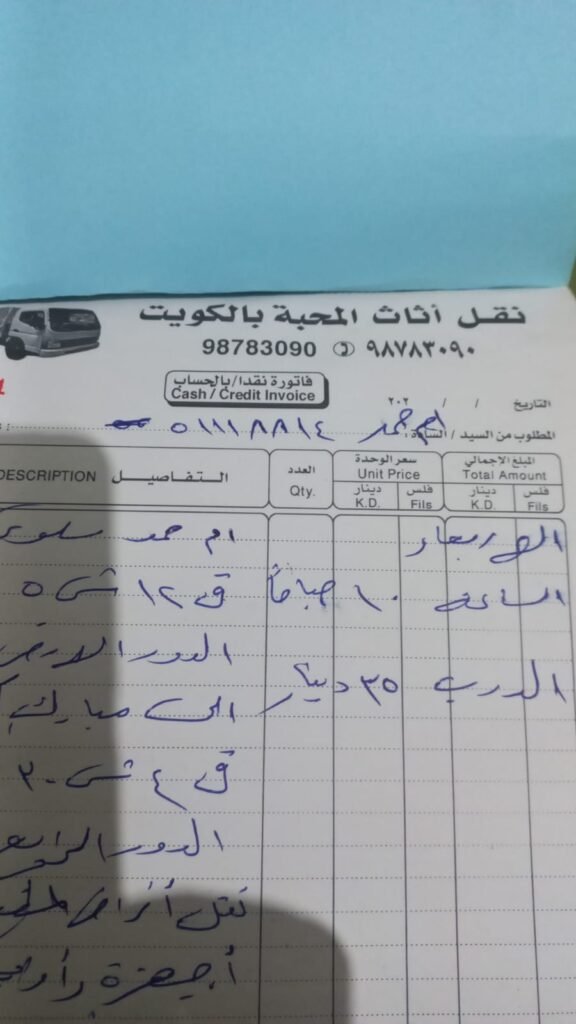 نقل أثاث المحبة بالكويت
98783090 ٩٨٧٨٣٠٩٠
فاتورة نقداً/بالحساب
Cash / Credit Invoice
التاريخ / / ٢٠٢
المطلوب من السيد / السادة: ام حمد ٥١١١٨٨١٤
المبلغ الإجمالي Total Amount
سعر الوحدة Unit Price
العدد Qty.
التفاصيل DESCRIPTION
فلس Fils دينار K.D. فلس Fils دينار K.D.
الاربعاء
ام حمد
الساعه ١٠ صباحاً
ق ١٢ ش ٥
الدور
الدرب ٣٥ دينار
الى مبارك
ق ٤ ش ٣٠
الدور الرابع
نقل أغراض
أجهزة